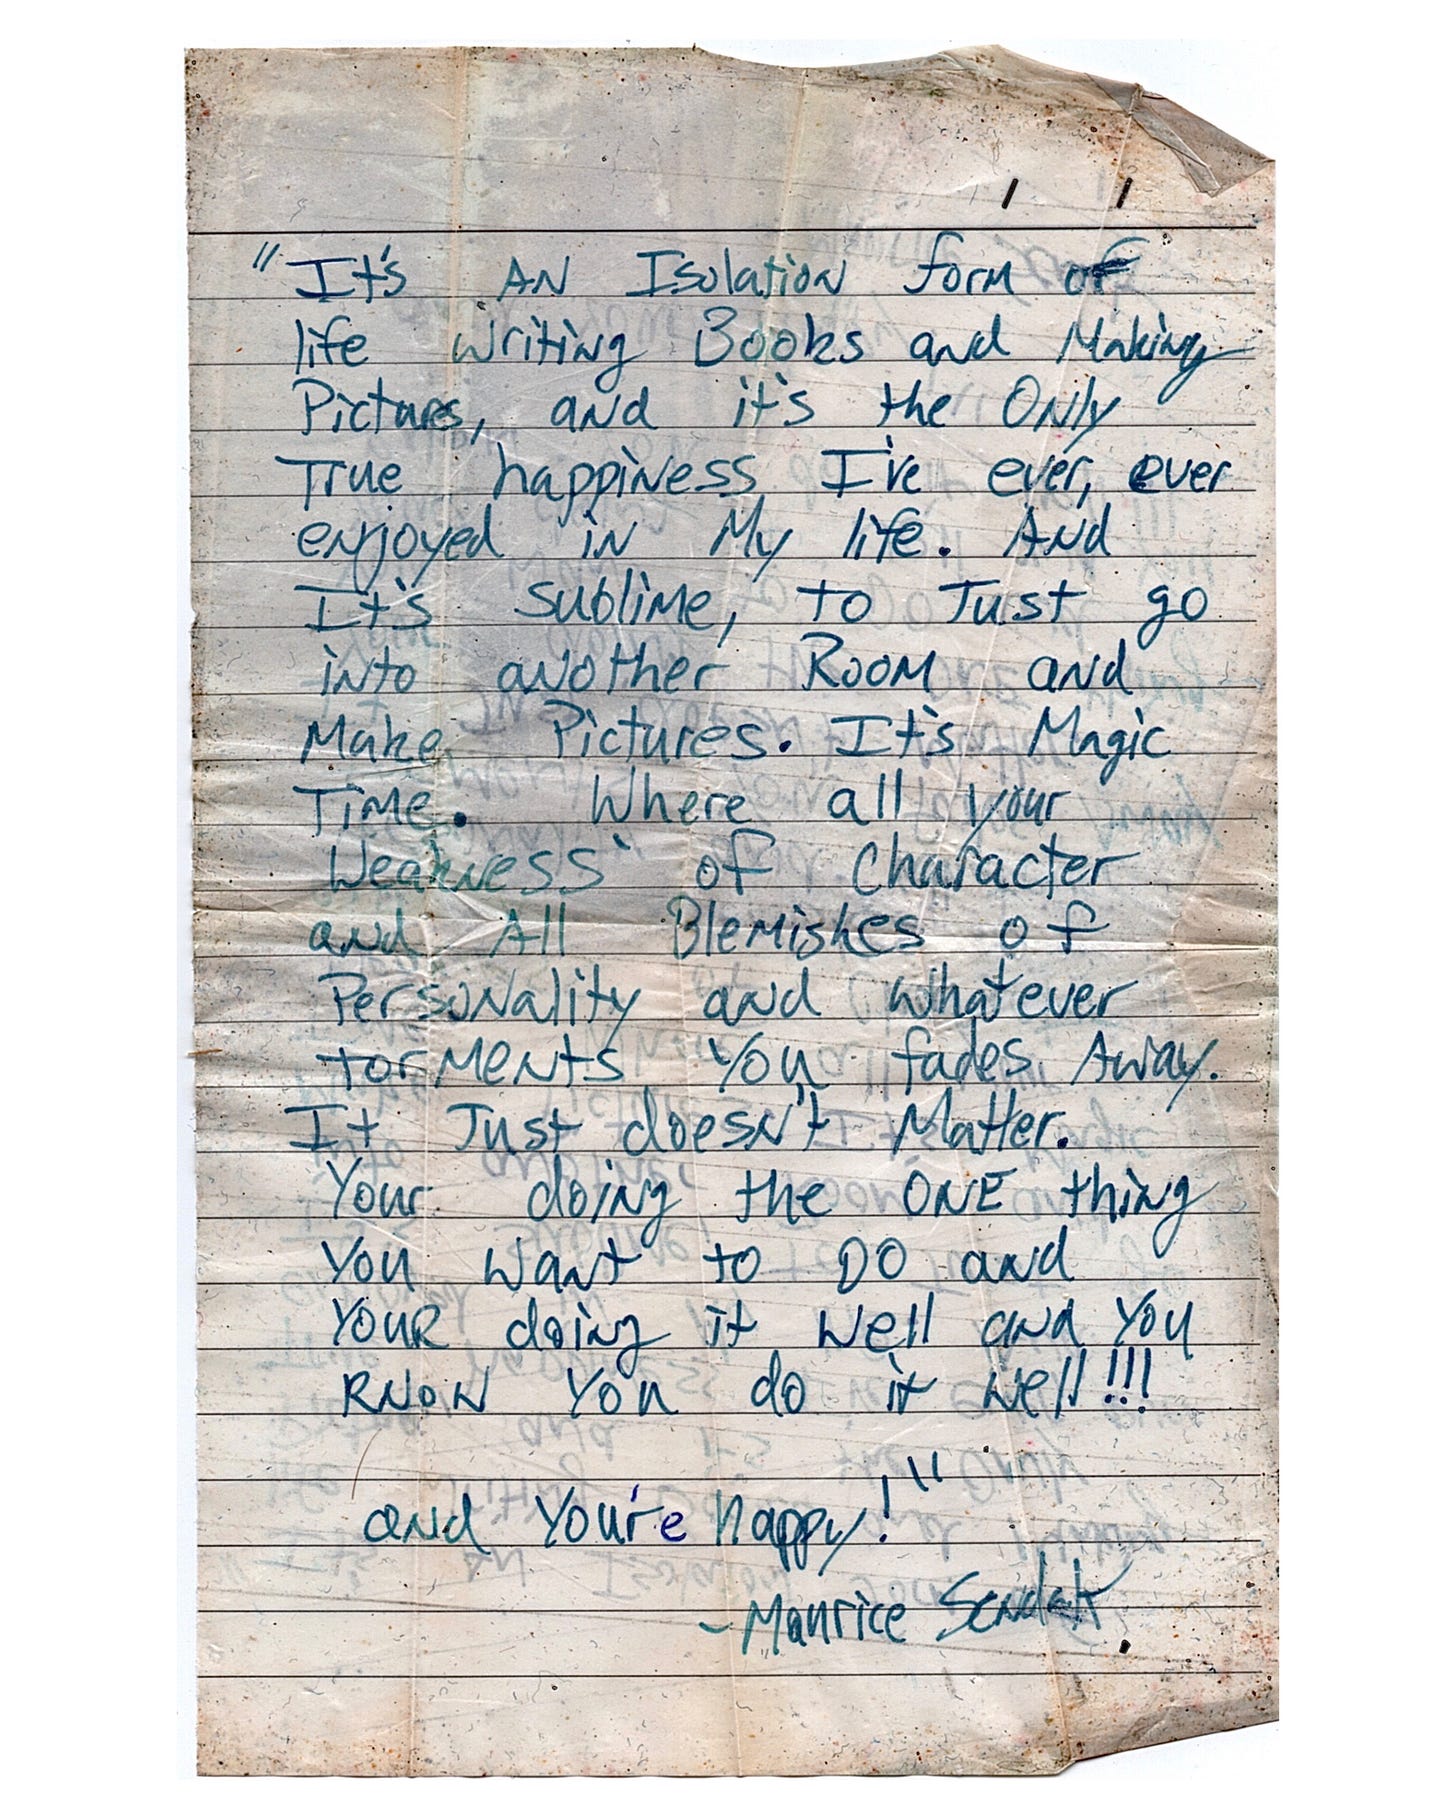 "It's AN Isolation form of
life writing Books and Making
Pictures, and it's the Only
True happiness I've ever, ever
enjoyed in My life. And
It's sublime, to Just go
into another Room and
Make Pictures. It's Magic
Time. Where all your
Weakness of Character
and All Blemishes of
Personality and whatever
torMents You fades Away.
It Just doesn't Matter.
Your doing the ONE thing
You want to DO and
YOUR doing it well and You
KNOW You do it well!!!
and You're happy!"
- Maurice Sendak